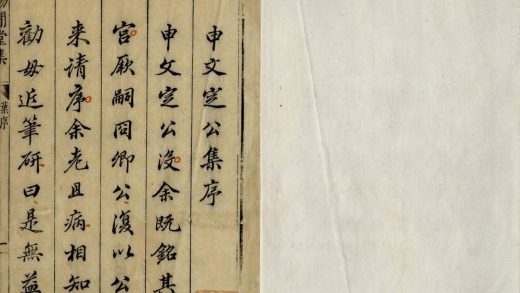 申文定公集序
申文定公沒余既銘其
宮厥嗣冏卿公復以公
来請序余老且病相知
勸毋近筆研曰是無益
閒堂集 葉序